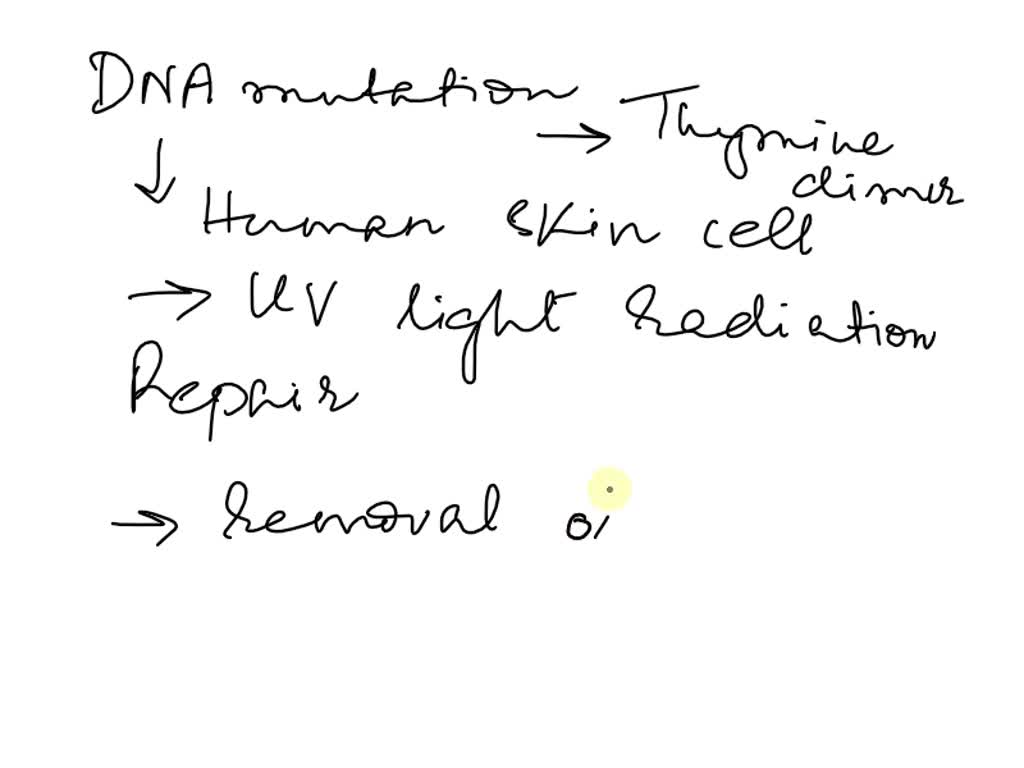 DNA mutation → Thymine
dimer
↓ Human skin cell
→ UV light radiation
Repair
→ removal